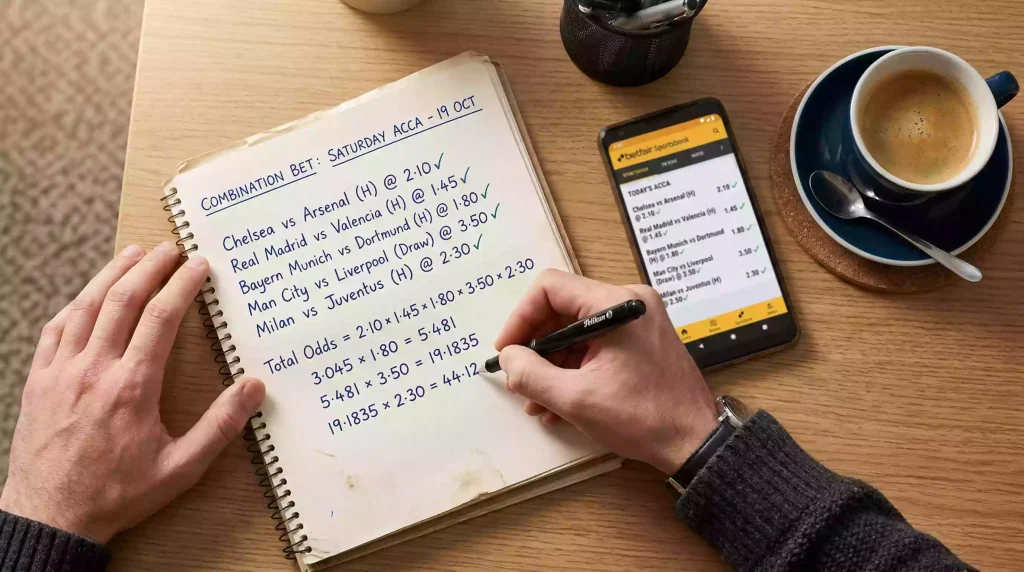 COMBINATION BET: SATURDAY ACCA - 19 OCT
Chelsea vs Arsenal (H) @ 2.10 ✓
Real Madrid vs Valencia (H) @ 1.45 ✓
Bayern Munich vs Dortmund (H) @ 1.80 ✓
Man City vs Liverpool (Draw) @ 3.50 ✓
Milan vs Juventus (H) @ 2.30 ✓
Total Odds = 2.10 × 1.45 × 1.80 × 3.50 × 2.30
3.045 × 1.80 = 5.481
5.481 × 3.50 = 19.1835
19.1835 × 2.30 = 44.12
Pelikan
betfair Sportsbook
TODAY'S ACCA
Chelsea vs Arsenal (H) 2.10 ✓
@ 2.10 ✓
Real Madrid vs Valencia (H) 1.45 ✓
@ 1.45 ✓
Bayern Munich vs Dortmund 1.80 ✓
(H) @ 1.80 ✓
Man City vs Liverpool 3.50 ✓
(Draw) @ 3.50 ✓
Milan vs Juventus (H) 2.30 ✓
2.50 ✓